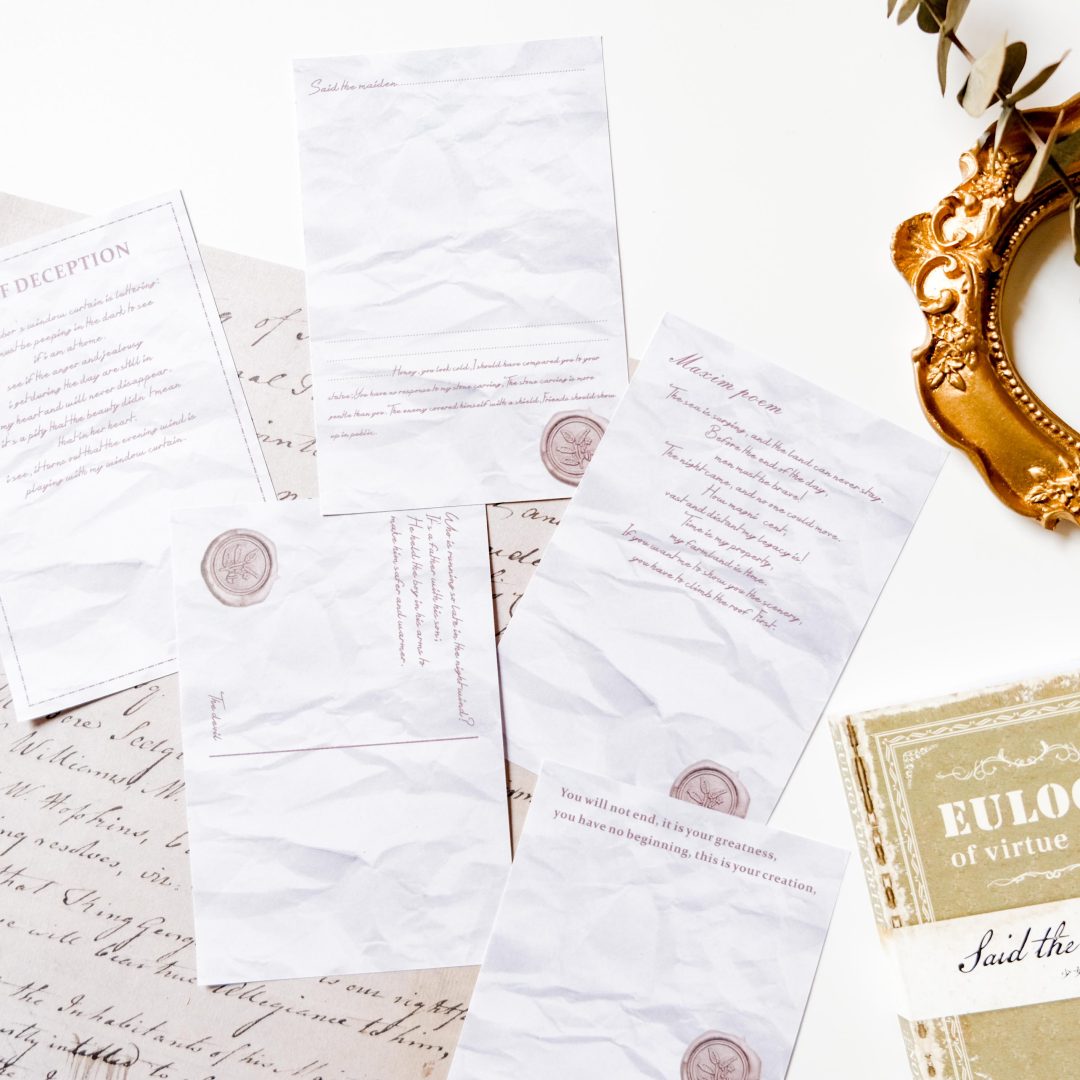 Said the maiden
Honey, you look cold, I should have compared you to your
statue; You have no response to my stone carving. The stone carving is more
gentle than you. The enemy covered himself with a shield, Friends should show
up in public.
F DECEPTION
bor s window curtain is luttering;
must be peeping in the dark to see
if i am at home.
see if the anger and jealousy
i get during the day are still in
my heart and will never disappear.
it's a pity that the beauty didn. I mean
that in her heart.
i see, it turns out that the evening wind is
playing with my window curtain.
Maxim poem
The sea is surging, and the land can never stay.
Before the end of the day,
men must be brave!
The night came, and no one could move.
How magni cent,
vast and distant my legacy is!
Time is my property,
my farmland is time.
If you want me to show you the scenery,
you have to climb the roof First.
Who is running so late in the night wind?
It's a father with his son;
He held the boy in his arms to
make him safer and warmer.
The devil
You will not end, it is your greatness,
you have no beginning, this is your creation,
EULO
of virtue
Said the
of
Williams
W. Hopkins,
ing resolves, viz:
that King George
is our rightf
we will bear true Allegiance to him,
the Inhabitants of his